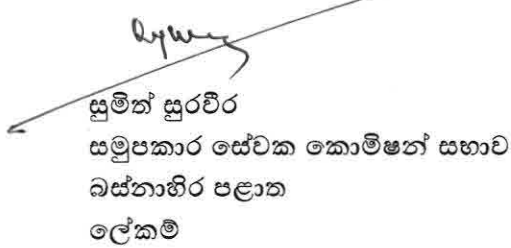 සුමිත් සුරවීර
සමුපකාර සේවක කොමිෂන් සභාව
බස්නාහිර පළාත
ලේකම්